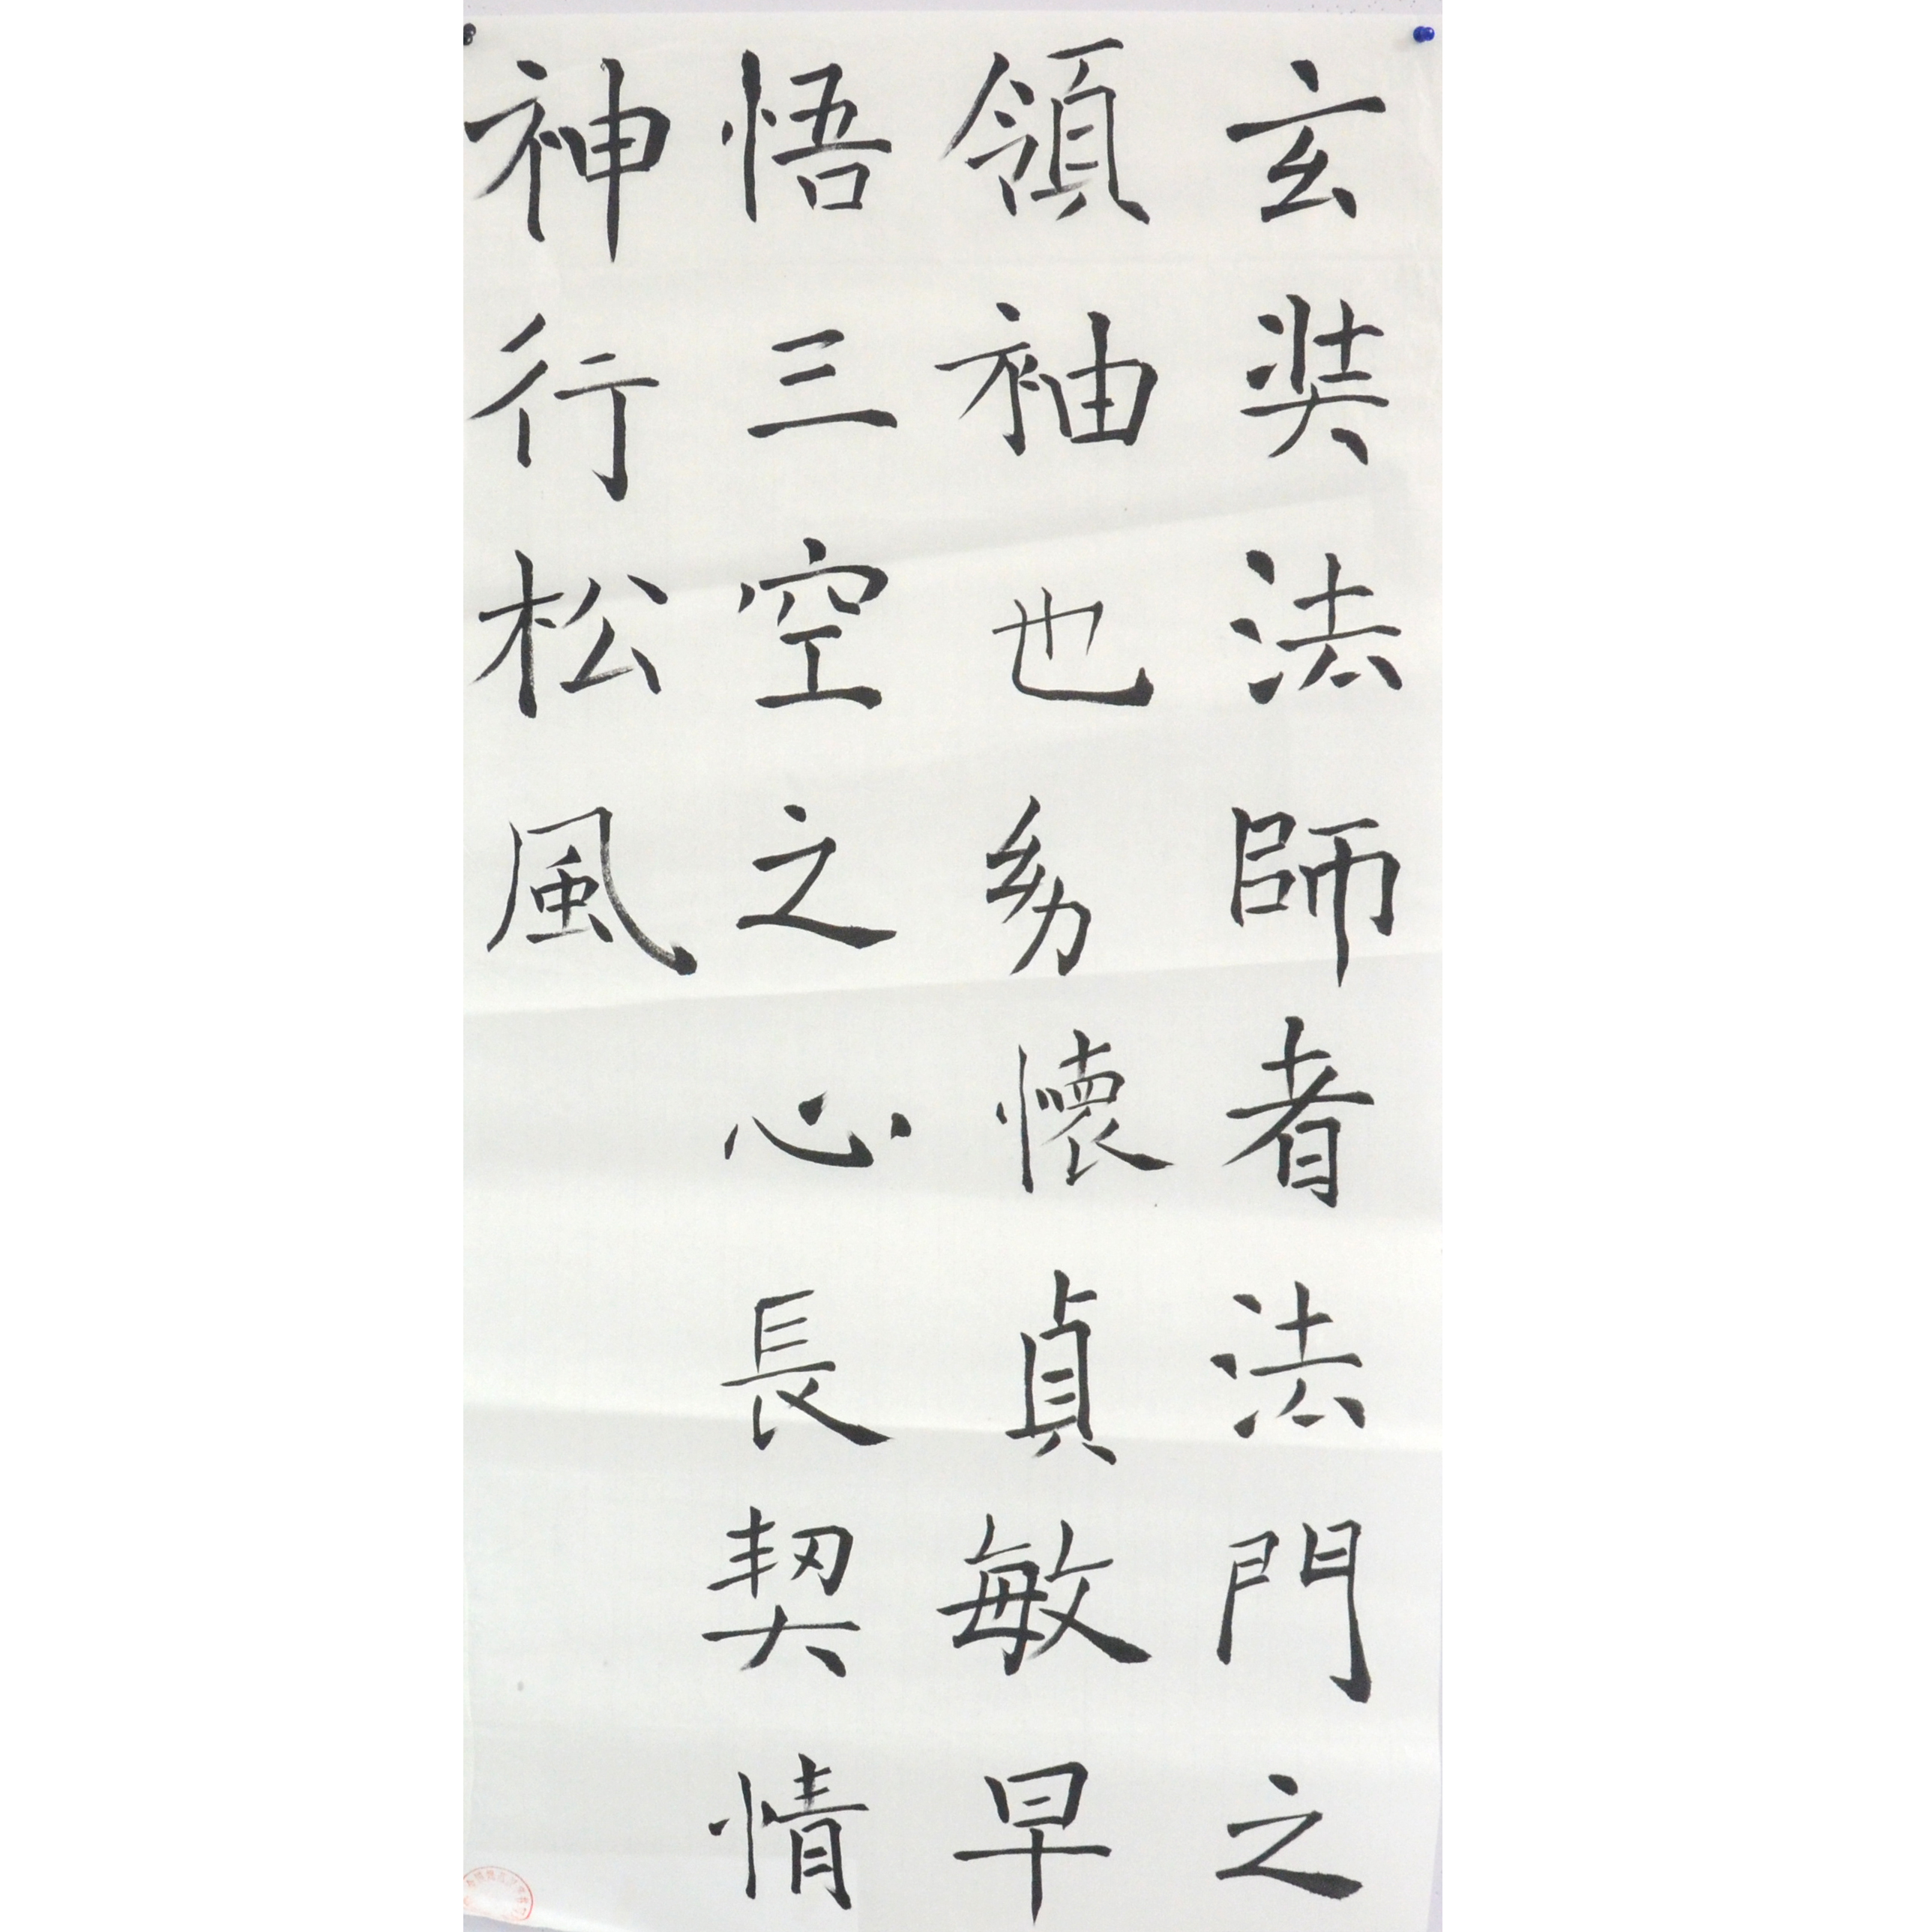 玄奘法師者法門之
領袖也幼懷貞敏早
悟三空之心長契情
神行松風